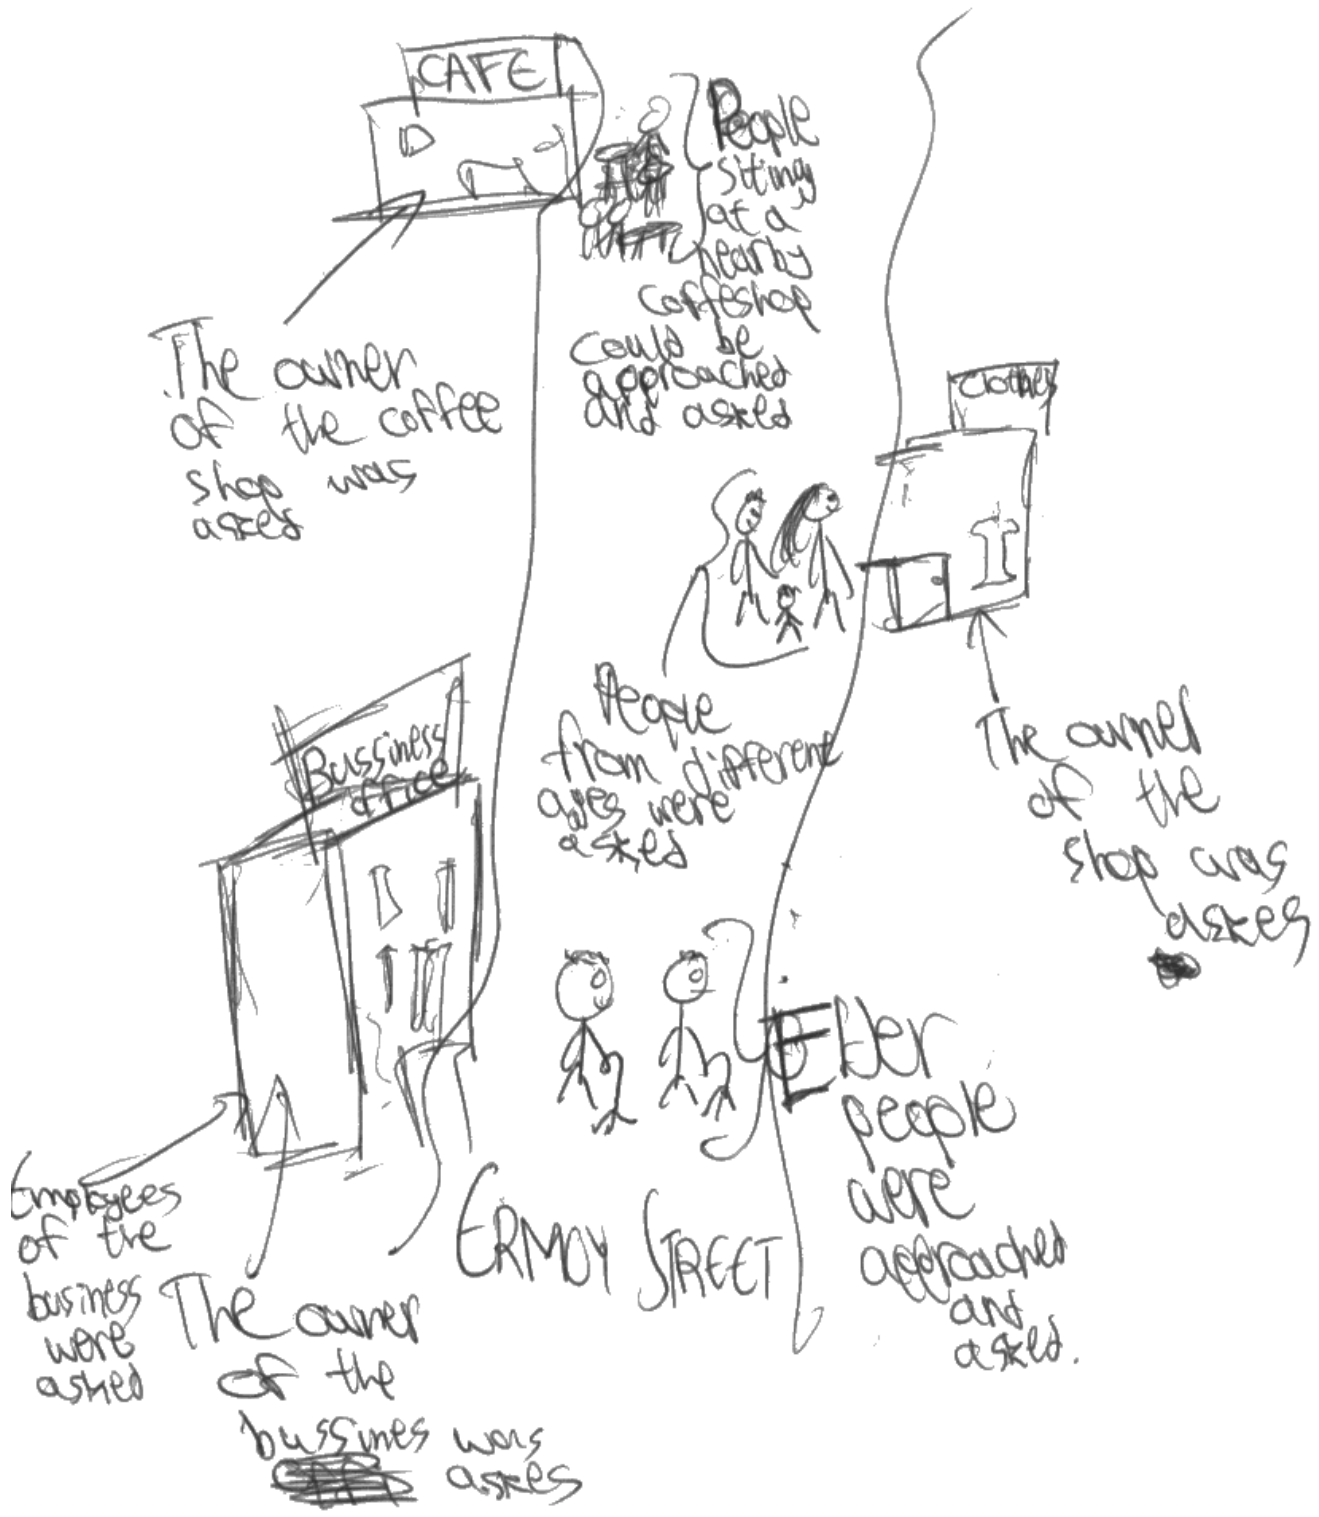 CAFE
People
sitting
at a
nearby
coffeshop
could be
approached
and asked
The owner
of the coffee
shop was
asked
Clothes
People
from different
ages were
asked
The owner
of the
shop was
askes
Bussiness
office
Elder
people
were
approached
and
asked.
ERMOY STREET
Employees
of the
business
were
asked
The owner
of the
bussines was
askes